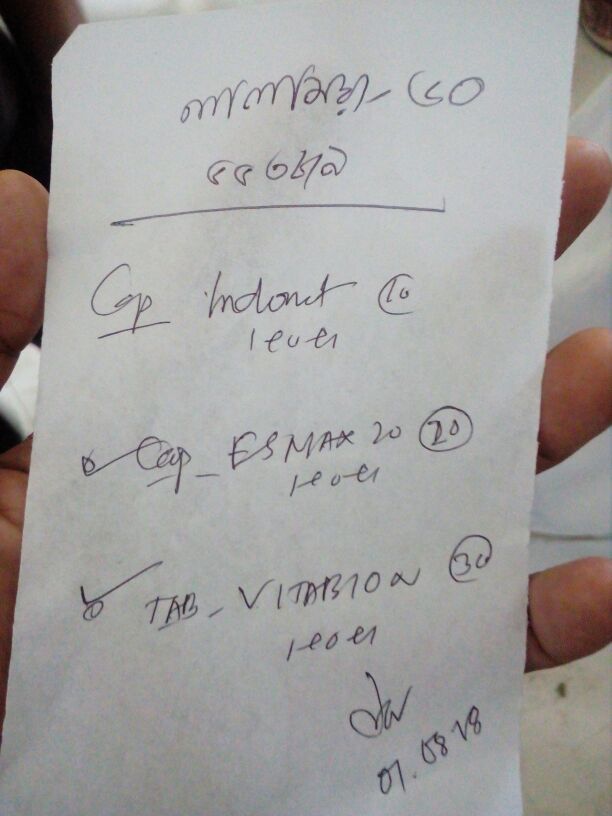 Cap Indomet 10
১+০+১
Cap - ESMAX 20 20
১+০+১
TAB - VITABION 30
১+০+১
01.08.18